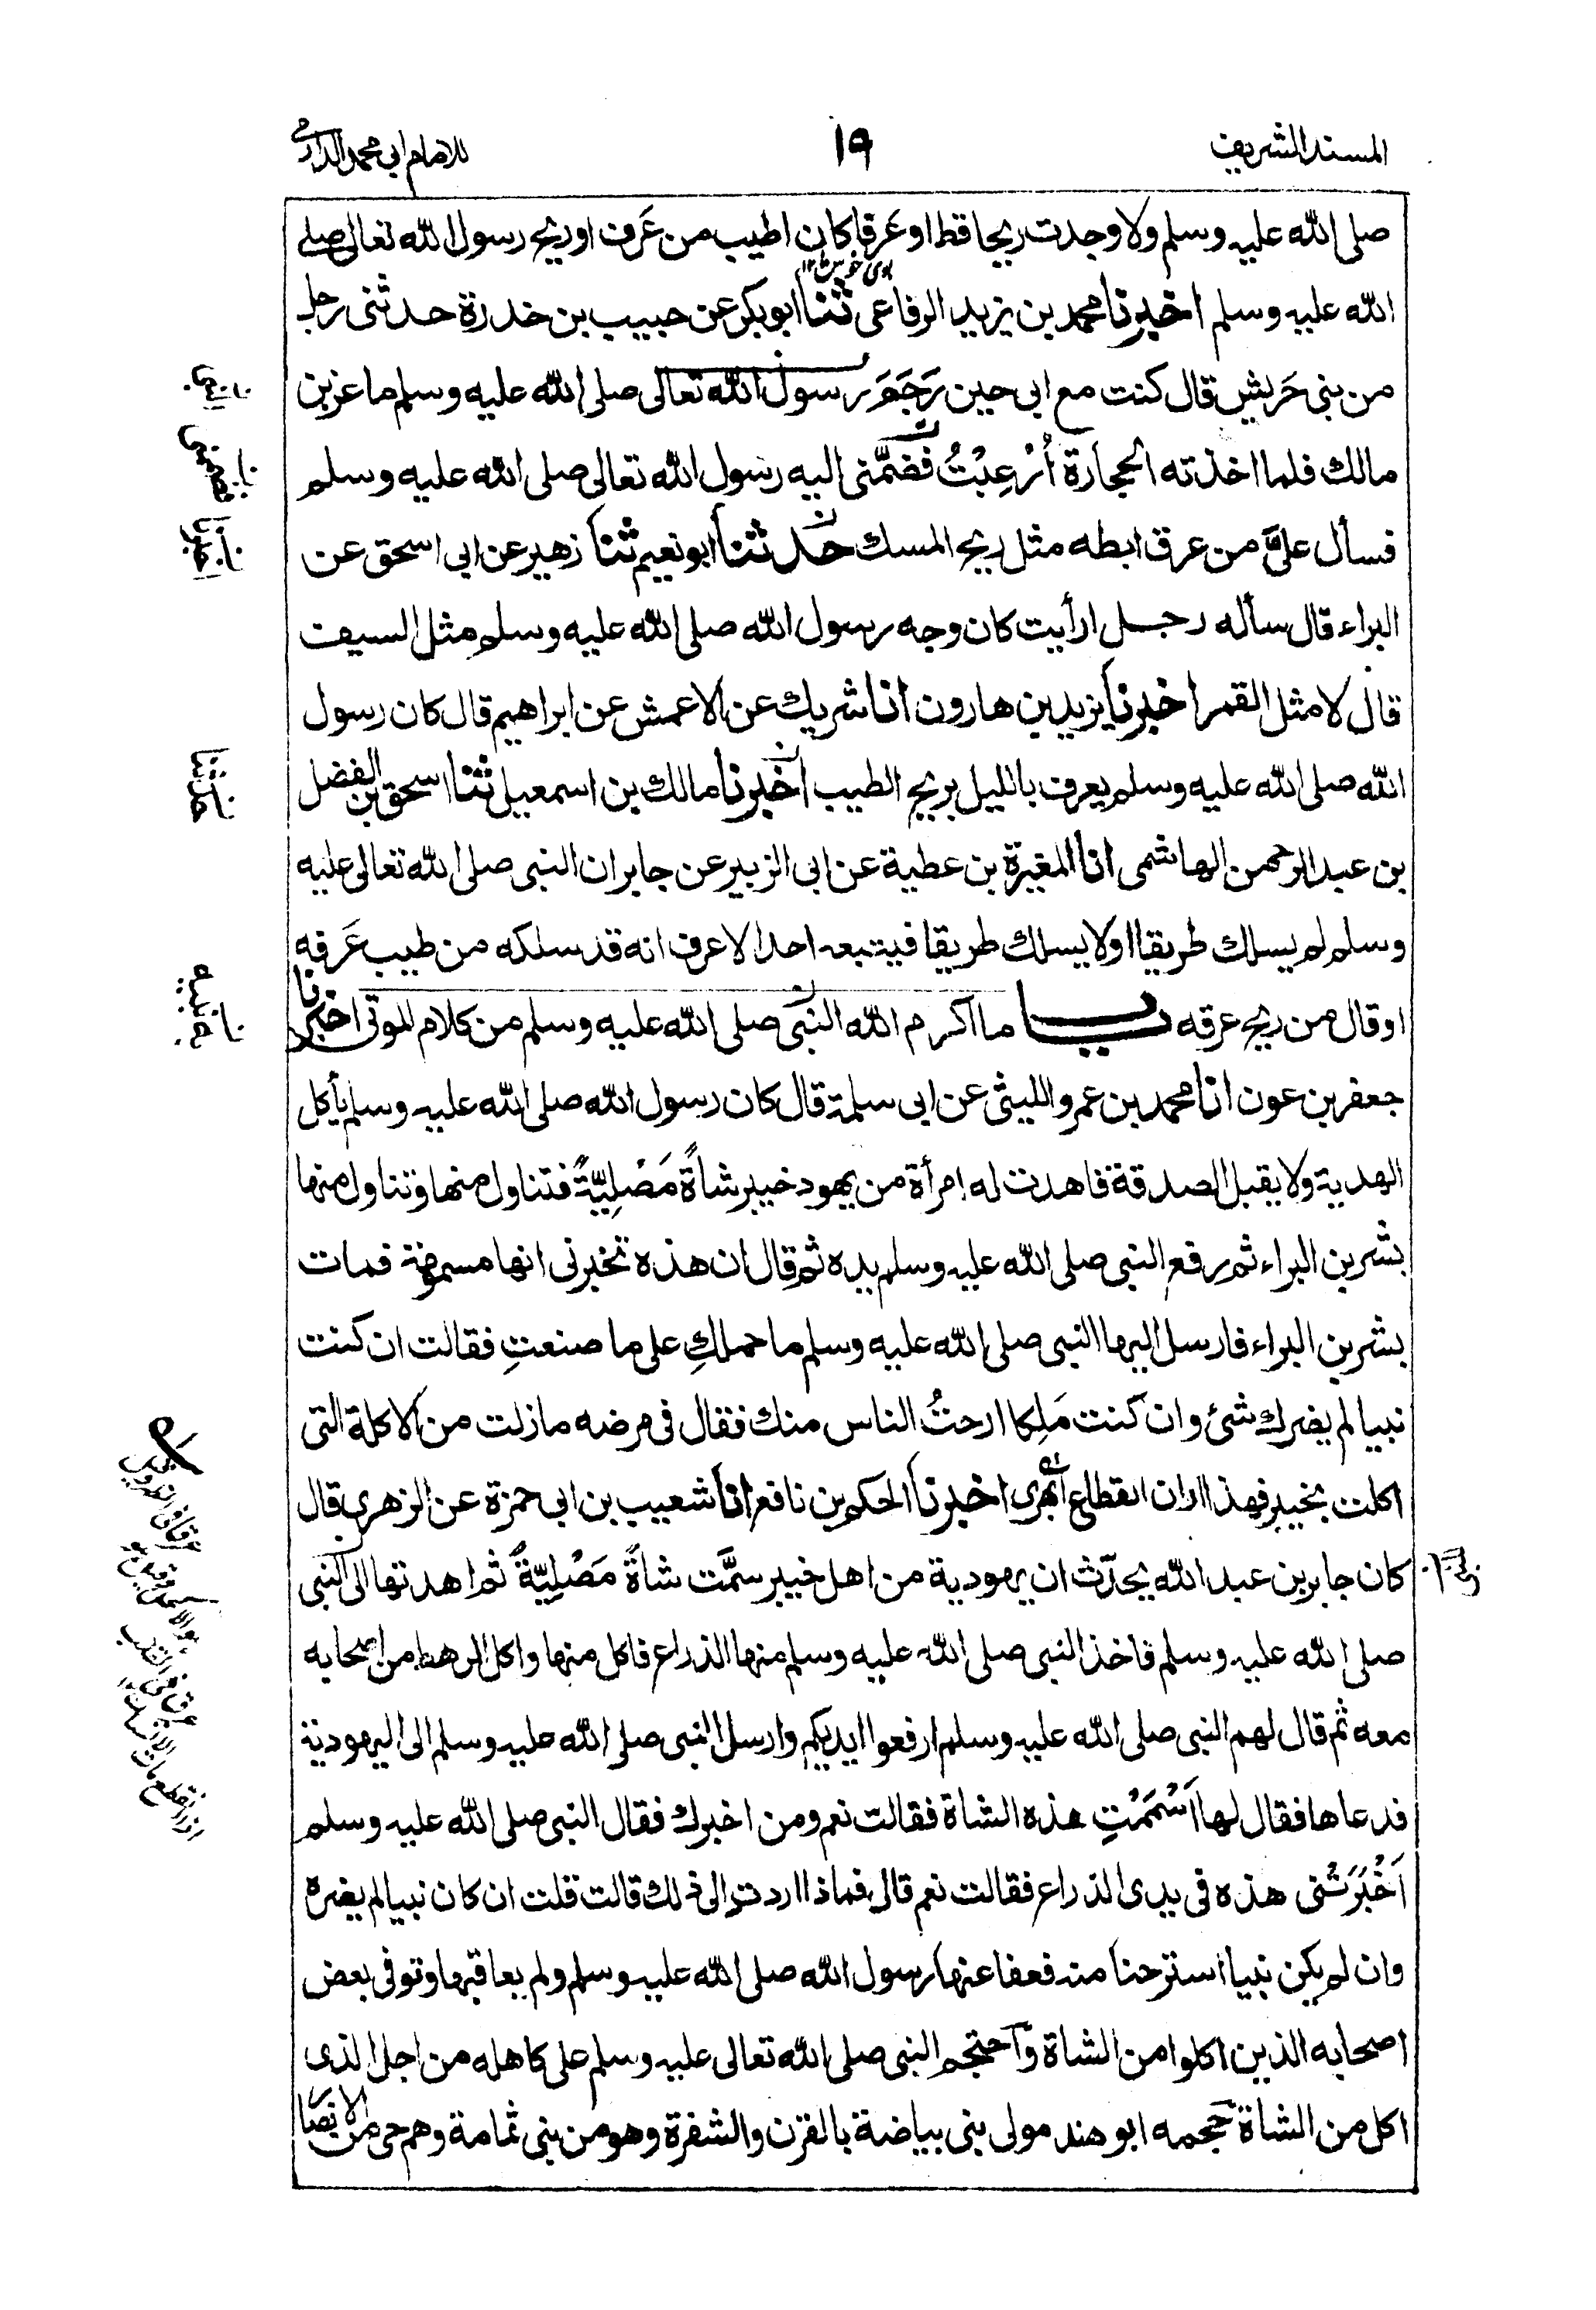 المسند الشريف
١٩
للامام ابی محمد الدارمی
صلی الله عليه وسلم ولا وجدت ريحا قط او عَرفا كان اطيب من عَرف او ريح رسول الله تعالی صلی
الله عليه وسلم اخبرنا محمد بن يزيد الرفاعی ثنا ابو بكر عن حبيب بن خدرة حدثنی رجل
من بنی حَريش قال كنت مع ابی حين رَجَمَ رسول الله تعالی صلی الله عليه وسلم ماعز بن
مالك فلما اخذته الحجارة اُرْعِبْتُ فضمَّنی اليه رسول الله تعالی صلی الله عليه وسلم
فسأل علیَّ من عرق ابطه مثل ريح المسك حدثنا ابو نعيم ثنا زهير عن ابی اسحق عن
البراء قال سأله رجل ارأيت كان وجه رسول الله صلی الله عليه وسلم مثل السيف
قال لا مثل القمر اخبرنا يزيد بن هارون انا شريك عن الاعمش عن ابراهيم قال كان رسول
الله صلی الله عليه وسلم يعرف بالليل بريح الطيب اخبرنا مالك بن اسمعيل ثنا اسحق بن الفضل
بن عبد الرحمن الهاشمی انا المغيرة بن عطية عن ابی الزبير عن جابر ان النبی صلی الله تعالی عليه
وسلم لم يسلك طريقا او لا يسلك طريقا فيتبعه احد الا عرف انه قد سلكه من طيب عَرفه
او قال من ريح عرقه باب ما اكرم الله النبی صلی الله عليه وسلم من كلام الموتی اخبرنا
جعفر بن عون انا محمد بن عمرو الليثی عن ابی سلمة قال كان رسول الله صلی الله عليه وسلم يأكل
الهدية ولا يقبل الصدقة فاهدت له امرأة من يهود خيبر شاةً مَصْلِيّةً فتناول منها وتناول منها
بشر بن البراء ثم رفع النبی صلی الله عليه وسلم يده ثم قال ان هذه تخبرنی انها مسمومة فمات
بشر بن البراء فارسل اليها النبی صلی الله عليه وسلم ما حملكِ علی ما صنعتِ فقالت ان كنت
نبيا لم يضرك شئ وان كنت مَلِكا ارحتُ الناس منك فقال فی مرضه ما زلت من الاكلة التی
اكلت بخيبر فهذا اوان انقطاع ابهری اخبرنا الحكم بن نافع انا شعيب بن ابی حمزة عن الزهری قال
كان جابر بن عبد الله يحدّث ان يهودية من اهل خيبر سمَّت شاةً مَصْلِيّةً ثم اهدتها الی النبی
صلی الله عليه وسلم فاخذ النبی صلی الله عليه وسلم منها الذراع فاكل منها واكل الرهط من اصحابه
معه ثم قال لهم النبی صلی الله عليه وسلم ارفعوا ايديكم وارسل النبی صلی الله عليه وسلم الی اليهودية
فدعاها فقال لها اَسْمَمْتِ هذه الشاة فقالت نعم ومن اخبرك فقال النبی صلی الله عليه وسلم
اَخْبَرَتْنی هذه فی يدی الذراع فقالت نعم قال فماذا اردت الی ذلك قالت قلت ان كان نبيا لم يضره
وان لم يكن نبيا استرحنا منه فعفا عنها رسول الله صلی الله عليه وسلم ولم يعاقبها وتوفی بعض
اصحابه الذين اكلوا من الشاة واحتجم النبی صلی الله تعالی عليه وسلم علی كاهله من اجل الذی
اكل من الشاة حجمه ابو هند مولی بنی بياضة بالقرن والشفرة وهو من بنی ثمامة وهم حی من الانصار